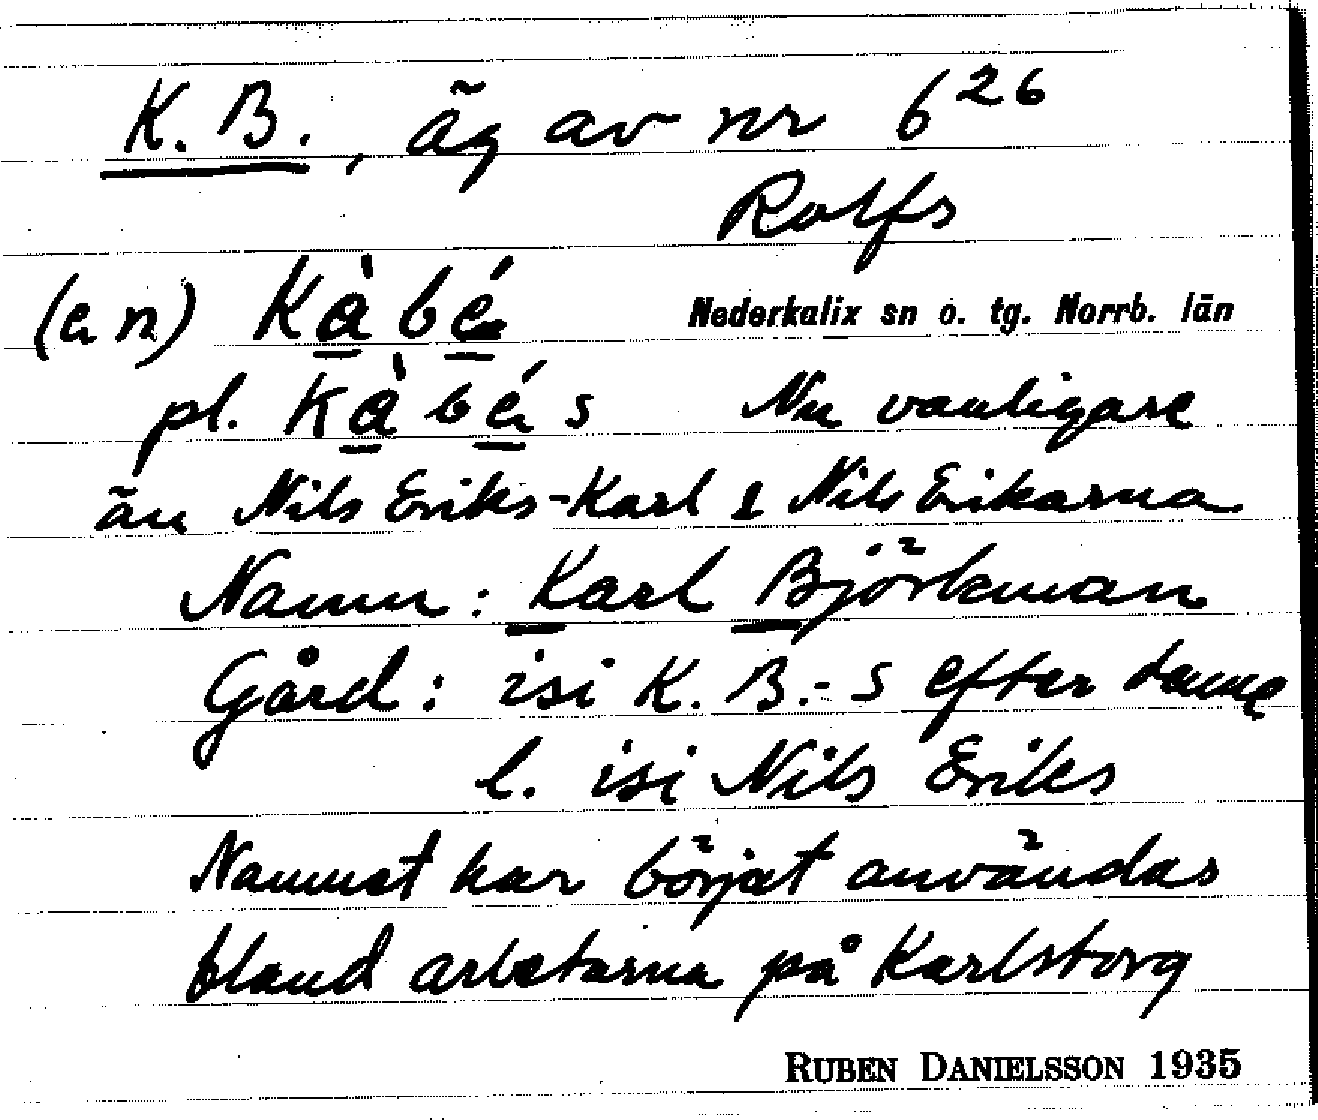 K. B., äg av nr 6²⁶
Rolfs
(en) Kàbé
Nederkalix sn o. tg. Norrb. län
pl. Kàbés Nu vanligare
än Nils Eriks-Karl l. Nils Erikarna
Namn: Karl Björkman
Gård: isi K. B.-s efter denne
l. isi Nils Eriks
Namnet har börjat användas
bland arbetarna på Karlsborg
RUBEN DANIELSSON 1935